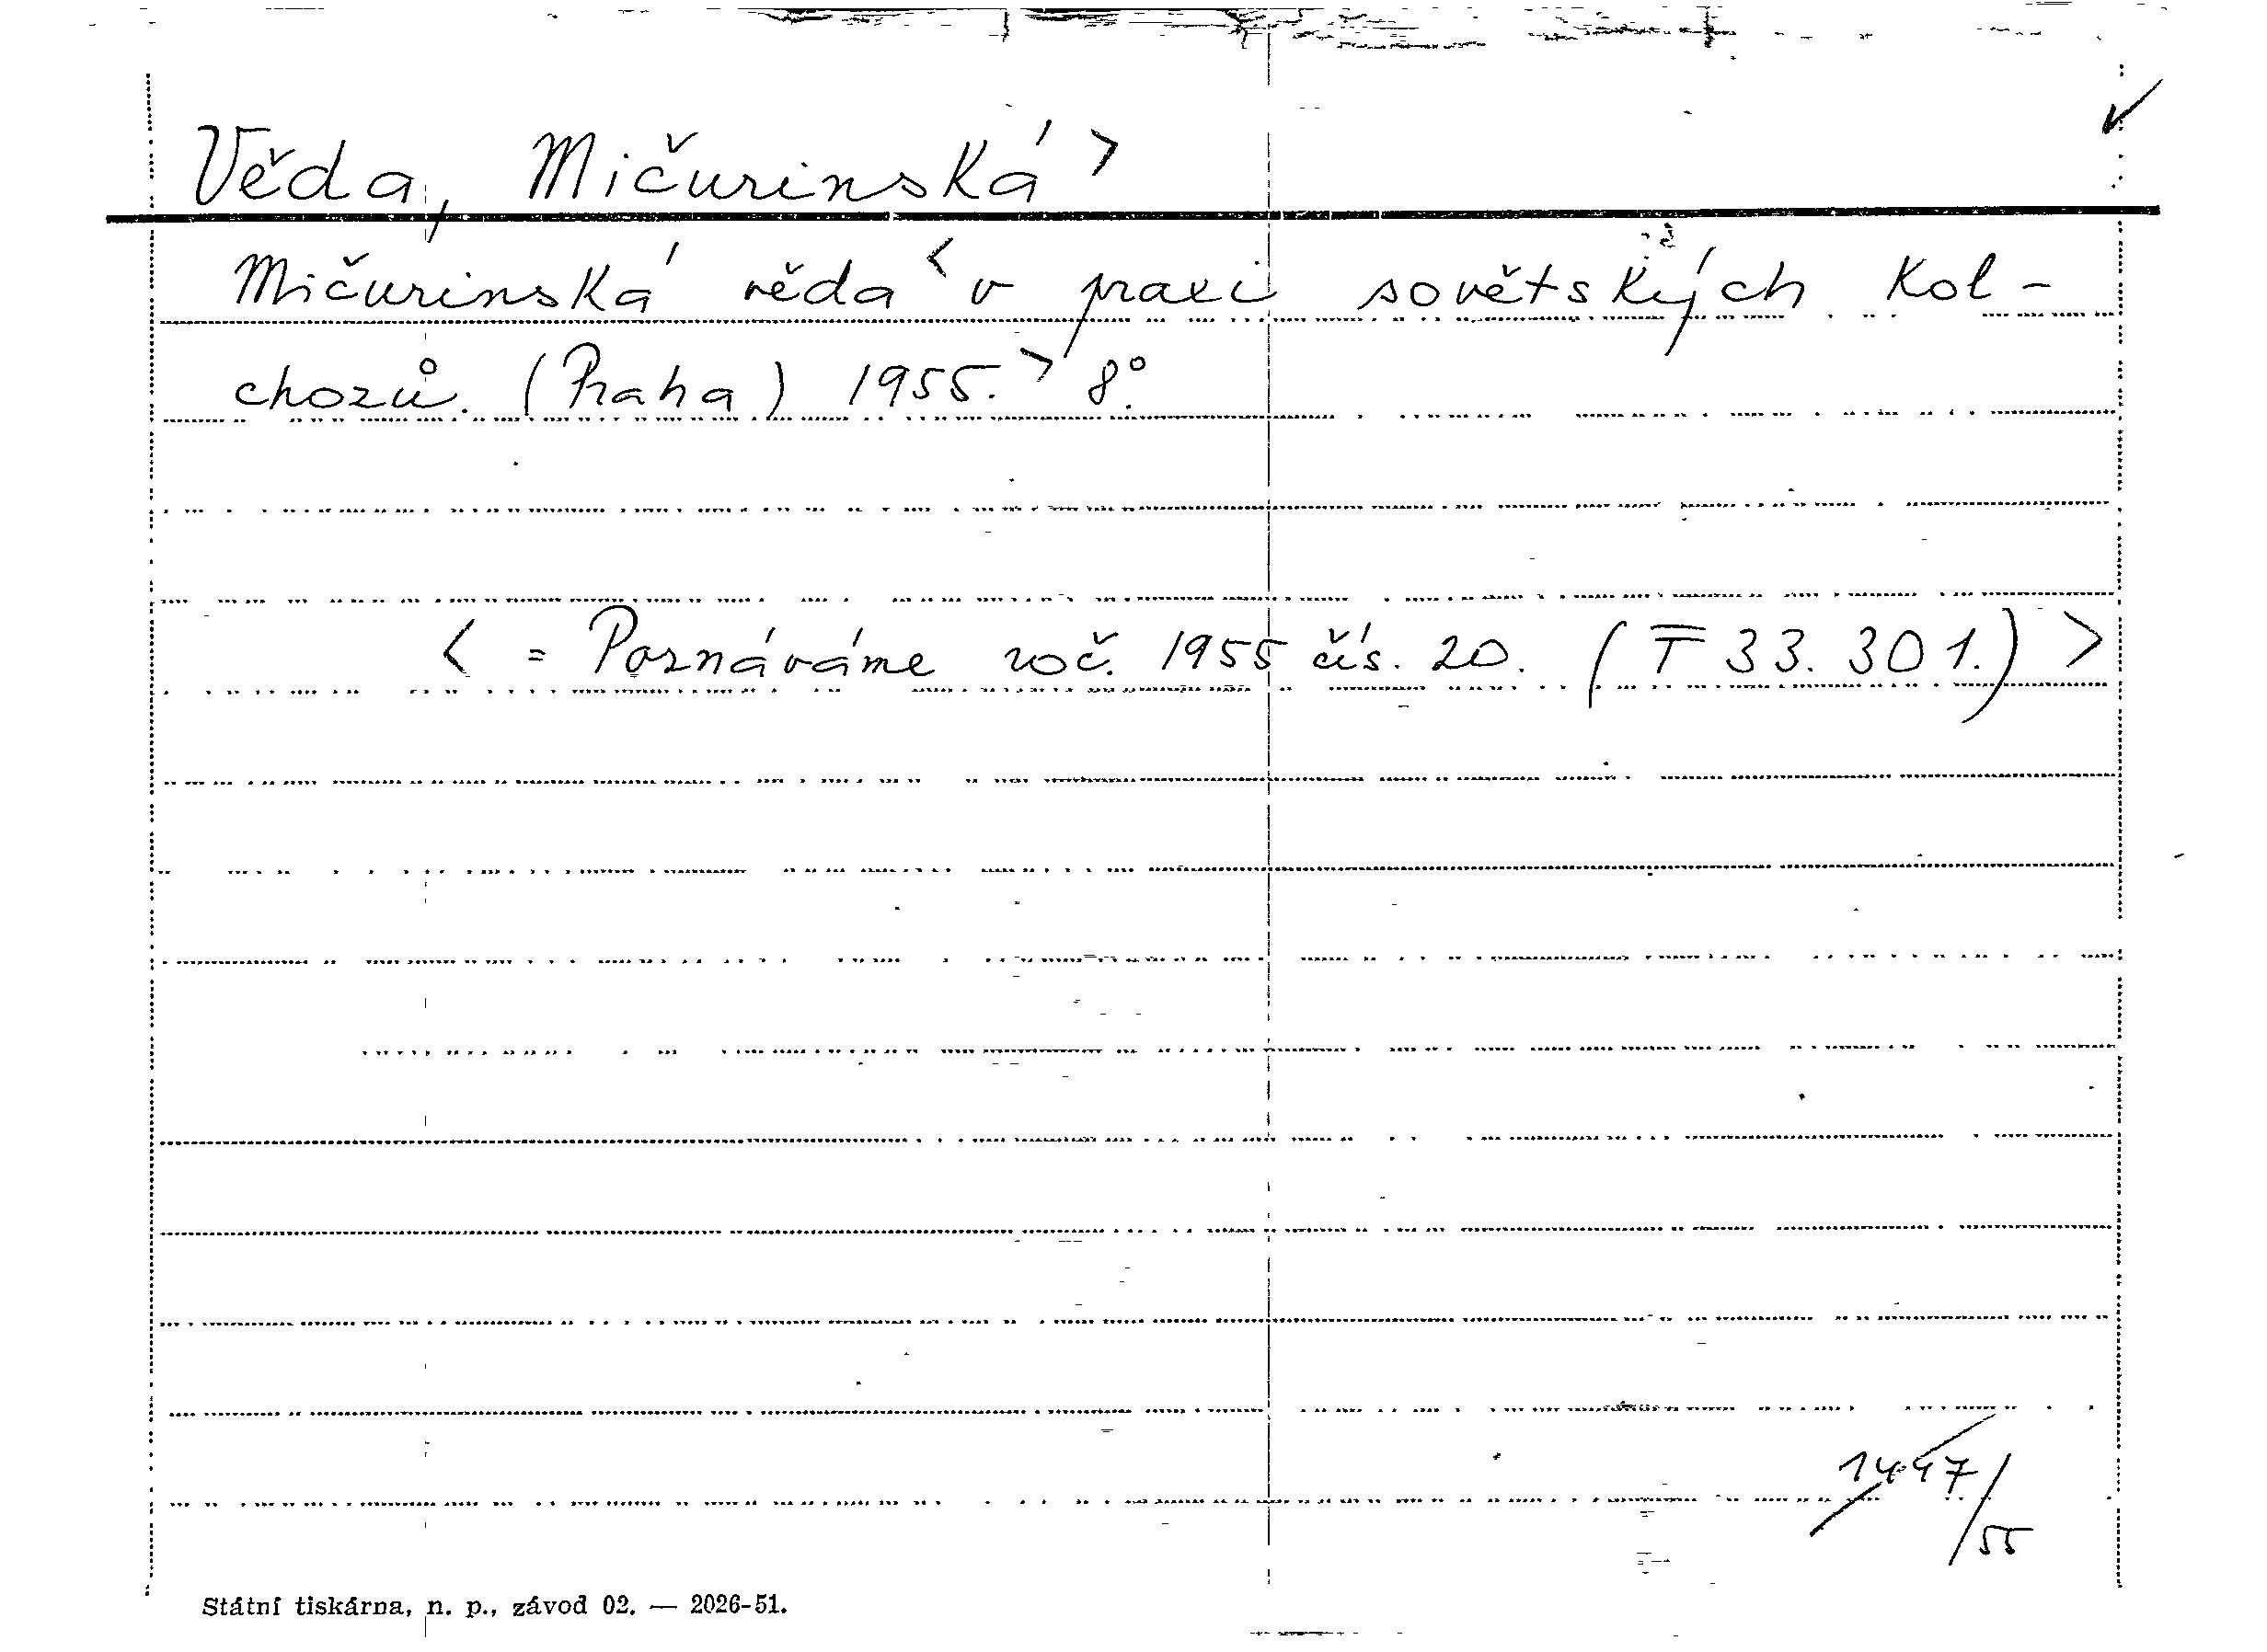 Věda, Mičurinská >
Mičurinská věda < v praxi sovětských kol-
chozů. (Praha) 1955. > 8°.
< = Poznáváme roč. 1955 čís. 20. (T 33.301.) >
1447/55
Státní tiskárna, n. p., závod 02. — 2026-51.